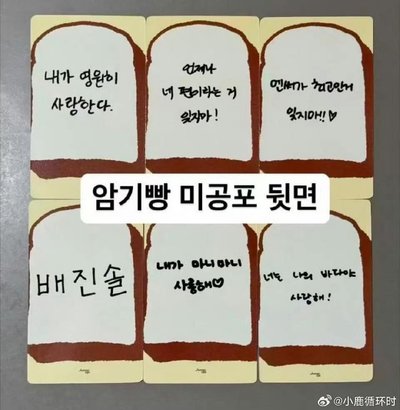 내가 영원히
사랑한다.
언제나
네 편이라는 거
잊지마!
엔써가 최고인거
잊지마!!♡
암기빵 미공포 뒷면
배진솔
내가 마니마니
사릉해♡
너는 나의 바다야
사랑해!
@小鹿循环时